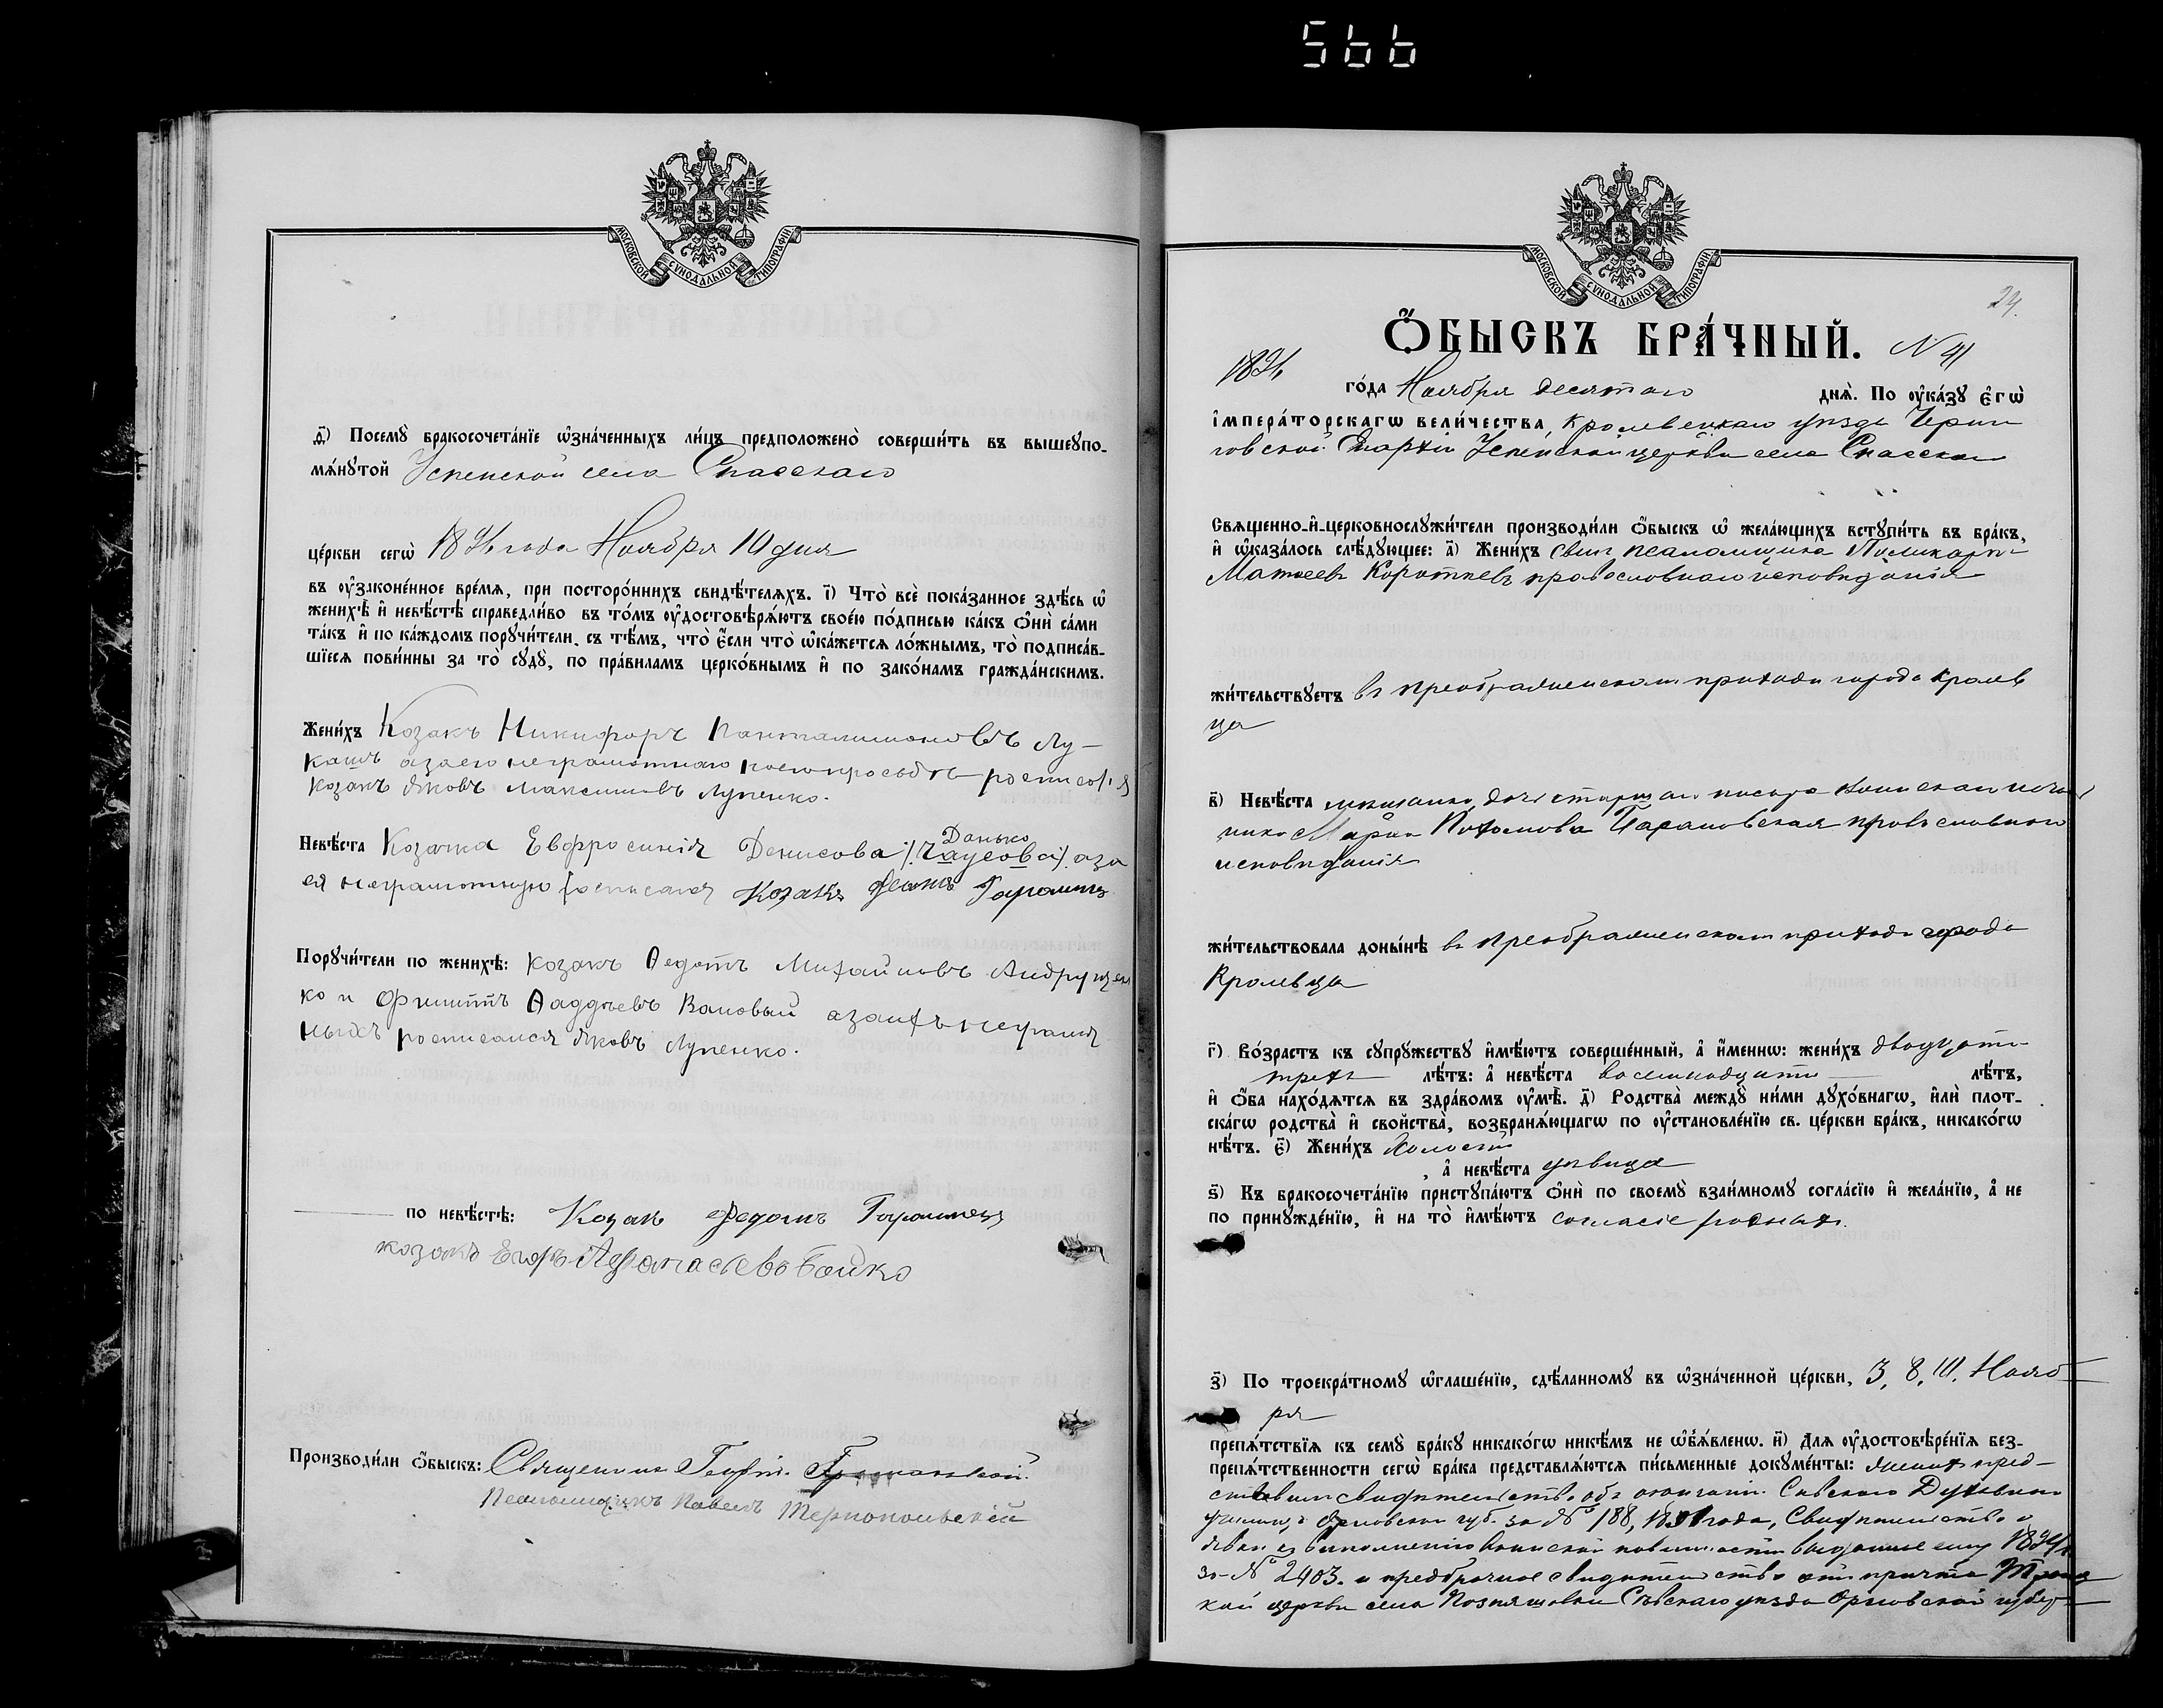 566
МОСКОВСКОЙ СѴНОДАЛЬНОЙ ТИПОГРАФІИ
ѳ҃) Посемꙋ̀ бракосочета́нїе ѡ҆зна́ченныхъ ли́цъ предположено̀ соверши́ть въ вышеꙋпо-
мѧ́нꙋтой Успенской села Спасскаго
це́ркви сегѡ̀ 1891 года Ноября 10 дня
въ ᲂу҆зᲂконе́нное вре́мѧ, при посторо́ннихъ свидѣ́телѧхъ. і҃) Что̀ всѐ пока́занное здѣ́сь ѡ҆
женихѣ̀ и҆ невѣ́стѣ справедли́во въ то́мъ ᲂу҆достовѣрѧ́ютъ свое́ю по́дписью ка́къ ѻ҆нѝ са́ми
та́къ и҆ по ка́ждомъ порꙋчи́тели, съ тѣ́мъ, что̀ є҆́сли что̀ ѡ҆ка́жетсѧ ло́жнымъ, то̀ подписа́в-
шїесѧ пови́нны за то̀ сꙋдꙋ̀, по пра́виламъ церко́внымъ и҆ по зако́намъ гражда́нскимъ.
Жени́хъ Козакъ Никифоръ Панталимоновъ Лу-
кашъ а за его неграмотнаго по его просьбѣ росписался
козакъ Яковъ Максимовъ Лупенко.
Данько
Невѣ́ста Козачка Евфросинія Денисова /Чаусова/ а за
ея неграмотную росписался Козакъ
Порꙋчи́тели по женихѣ̀: Козакъ Ѳедотъ Михайловъ Андрущен
ко и Филиппъ Ѳаддѣевъ а за ихъ неграмот
ныхъ росписался Яковъ Лупенко.
по невѣ́стѣ: Козак Федот
козакъ Егоръ Афанасьевъ Бойко
Производи́ли ѻ҆́быскъ: Священник Георгій
Псаломщикъ Павелъ Тернопольскій
МОСКОВСКОЙ СѴНОДАЛЬНОЙ ТИПОГРАФІИ
24.
Ѻ҆́БЫСКЪ БРА́ЧНЫЙ. N 41
1891
го́да Ноября десятаго днѧ̀. По ᲂу҆ка́зꙋ є҆гѡ̀
і҆мпера́торскагѡ вели́чества, Кролевецкаго уѣзда Черни
говской Епархіи Успенской церкви села Спасскаго
Свѧще́нно-и҆-церковнослꙋжи́тели производи́ли ѻ҆́быскъ ѡ҆ жела́ющихъ встꙋпи́ть въ бра́къ,
и҆ ѡ҆каза́лось слѣ́дꙋющее: а҃) Жени́хъ сынъ псаломщика Поликарпъ
Матѳеевъ Коротневъ православнаго исповѣданія
жи́тельствꙋетъ въ Преображенскомъ приходѣ города Кролев
ца
в҃) Невѣ́ста дочь старшаго писаря
Марія православнаго
исповѣданія
жи́тельствовала доны́нѣ въ Преображенскомъ приходѣ города
Кролевца
г҃) Во́зрастъ къ сꙋпрꙋ́жествꙋ и҆мѣ́ютъ соверше́нный, а҆ и҆́меннѡ: жени́хъ двадцати
трехъ лѣ́тъ: а҆ невѣ́ста восемнадцати лѣ́тъ,
и҆ ѻ҆́ба нахо́дѧтсѧ въ здра́вомъ ᲂу҆мѣ̀. д҃) Родства̀ междꙋ̀ ни́ми дꙋхо́внагѡ, и҆лѝ плот-
ска́гѡ родства̀ и҆ сво́йства, возбранѧ́ющагѡ по ᲂу҆становле́нїю св. це́ркви бра́къ, никако́гѡ
нѣ́тъ. є҃) Жени́хъ холостъ
, а҆ невѣ́ста дѣвица
ѕ҃) Къ бракосочета́нїю пристꙋпа́ютъ ѻ҆нѝ по своемꙋ̀ взаи́мномꙋ согла́сїю и҆ жела́нїю, а҆ не
по принꙋжде́нїю, и҆ на то̀ и҆мѣ́ютъ согласіе родныхъ.
з҃) По троекра́тномꙋ ѡ҆глаше́нїю, сдѣ́ланномꙋ въ ѡ҆зна́ченной це́ркви, 3, 8, 10, Нояб
ря
препѧ́тствїѧ къ семꙋ̀ бра́кꙋ никако́гѡ никѣ́мъ не ѡ҆б̾ѧ́вленѡ. и҃) Для ᲂу҆достовѣре́нїѧ без-
препѧ́тственности сегѡ̀ бра́ка представлѧ́ютсѧ пи́сьменные докꙋме́нты: женихъ пред-
ставилъ свидѣтельство объ окончаніи Сѣвскаго Духовнаго
училища Орловской губ. за № 188, 18 года, Свидѣтельство о
явкѣ къ выполненію воинской повинности выданное ему
за № 2403. и предбрачное свидѣтельство отъ причта Троиц
кой церкви села Сѣвскаго уѣзда Орловской губер-